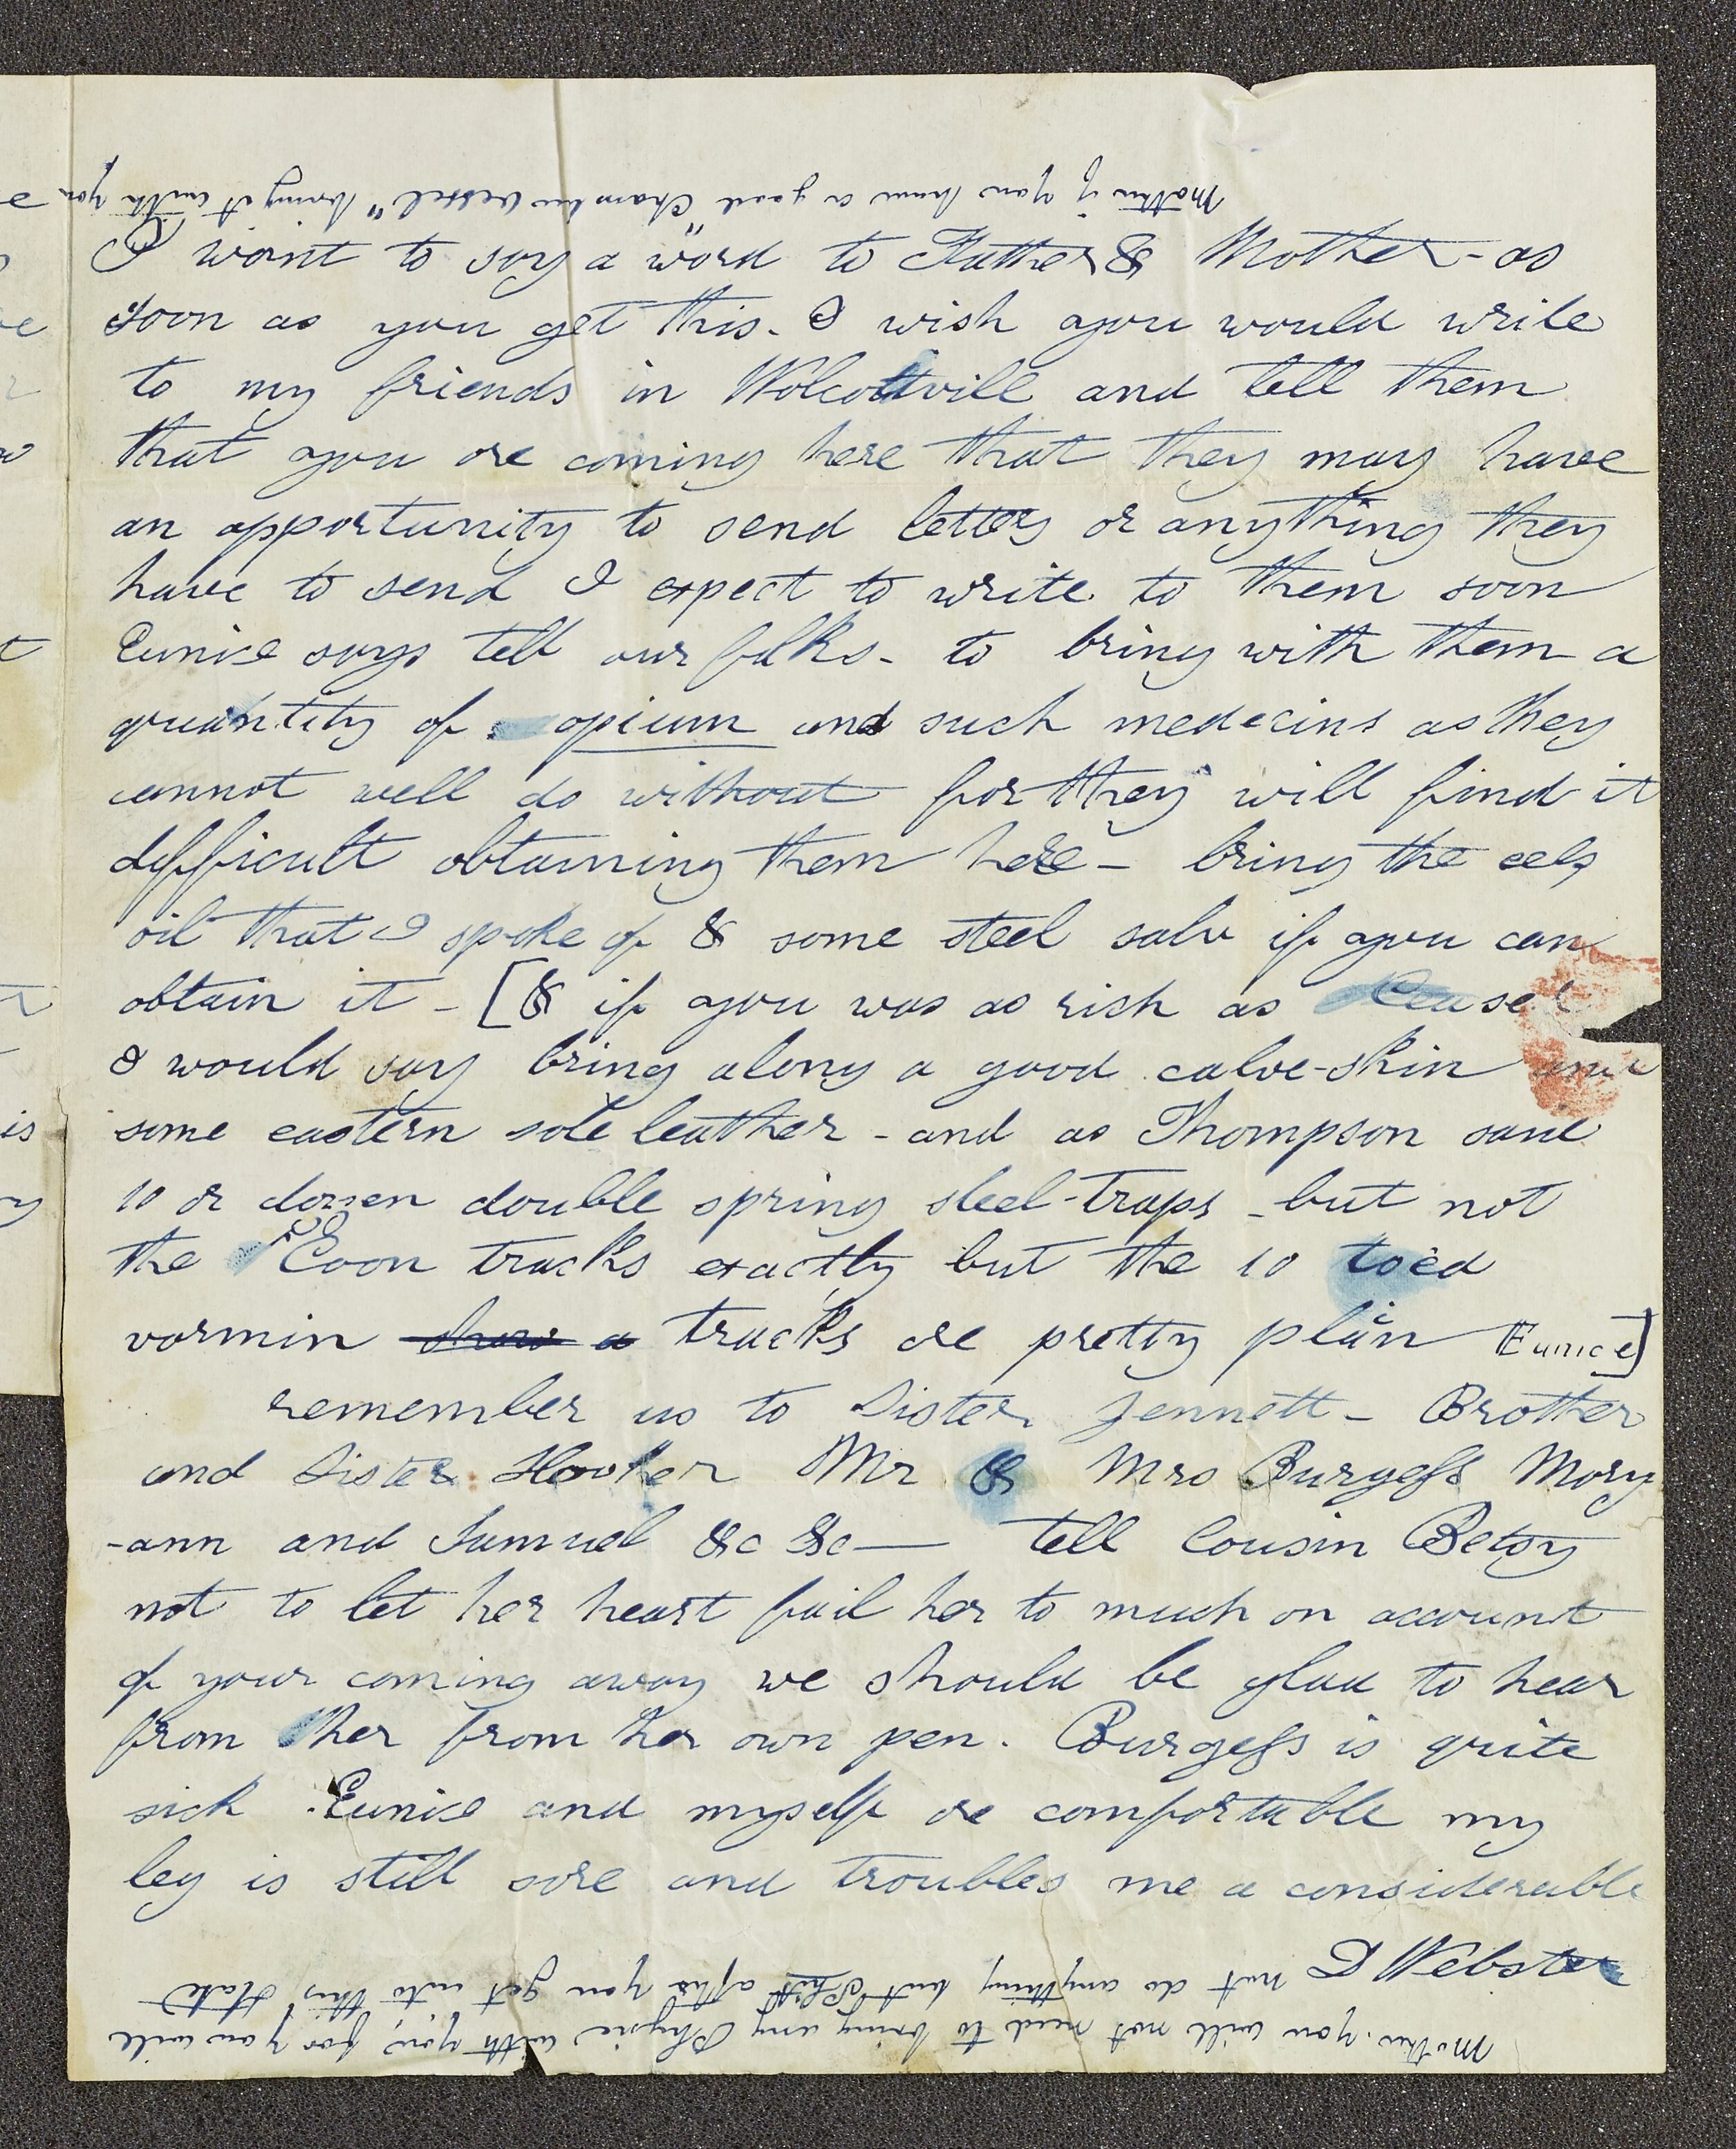 Mother if you have a good "Chamber Vessel" bring it with you
I want to say a word to Father & Mother - as
soon as you get this. I wish you would write
to my friends in Wolcottvill and tell them
that you are coming here that they may have
an opportunity to send letters or anything they
have to send I expect to write to them soon
Eunice says tell our folks - to bring with them a
quantity of opium and such medecins as they
cannot well do without for they will find it
difficult obtaining them here - bring the eels
oil that I spoke of & some steel salv if you can
obtain it - [& if you was as rich as
I would say bring along a good calve-skin and
some eastern sole leather - and as Thompson said
10 or dozen double spring steel-traps - but not
the Coon tracks exactly but the 10 toed
varmin tracks are pretty plain Eunice]
remember us to Sister Jennett - Brother
and Sister Hooker Mr & Mrs Burgess Mary
-ann and Samuel &c &c — tell Cousin Betsy
not to let her heart fail her to much on account
of your coming away we should be glad to hear
from her from her own pen. Burgess is quite
sick Eunice and myself are comfortable my
leg is still sore and troubles me a considerable
D Webster
Mother. you will not need to bring any Physic with you, for you will
not do anything but Shit after you get into this State
is